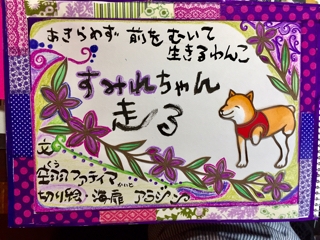 あきらめず 前を むいて
生きるわんこ
すみれちゃん
走る
文
くう
空羽 ファティマ
かいと
切り絵・海扉 アラジン